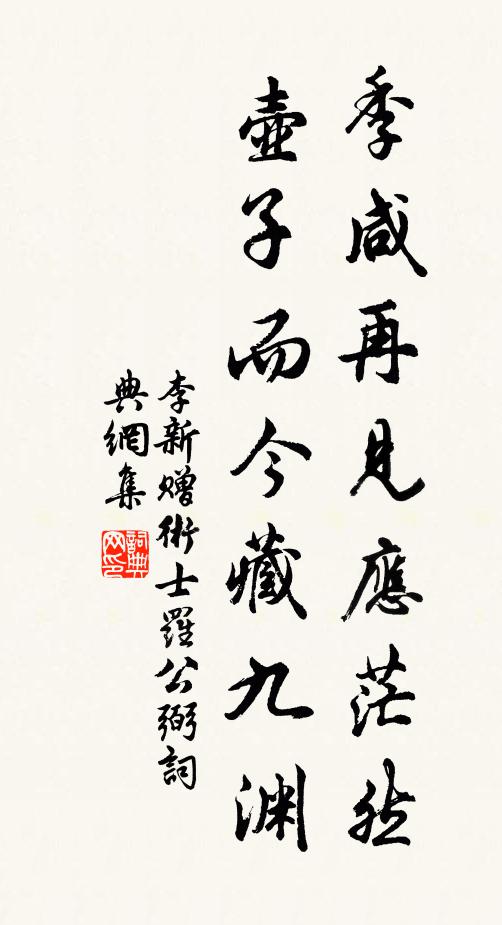 季咸再見應茫然
壺子而今藏九渊
李新赠術士羅公弼詞
典網集
詞典
网印